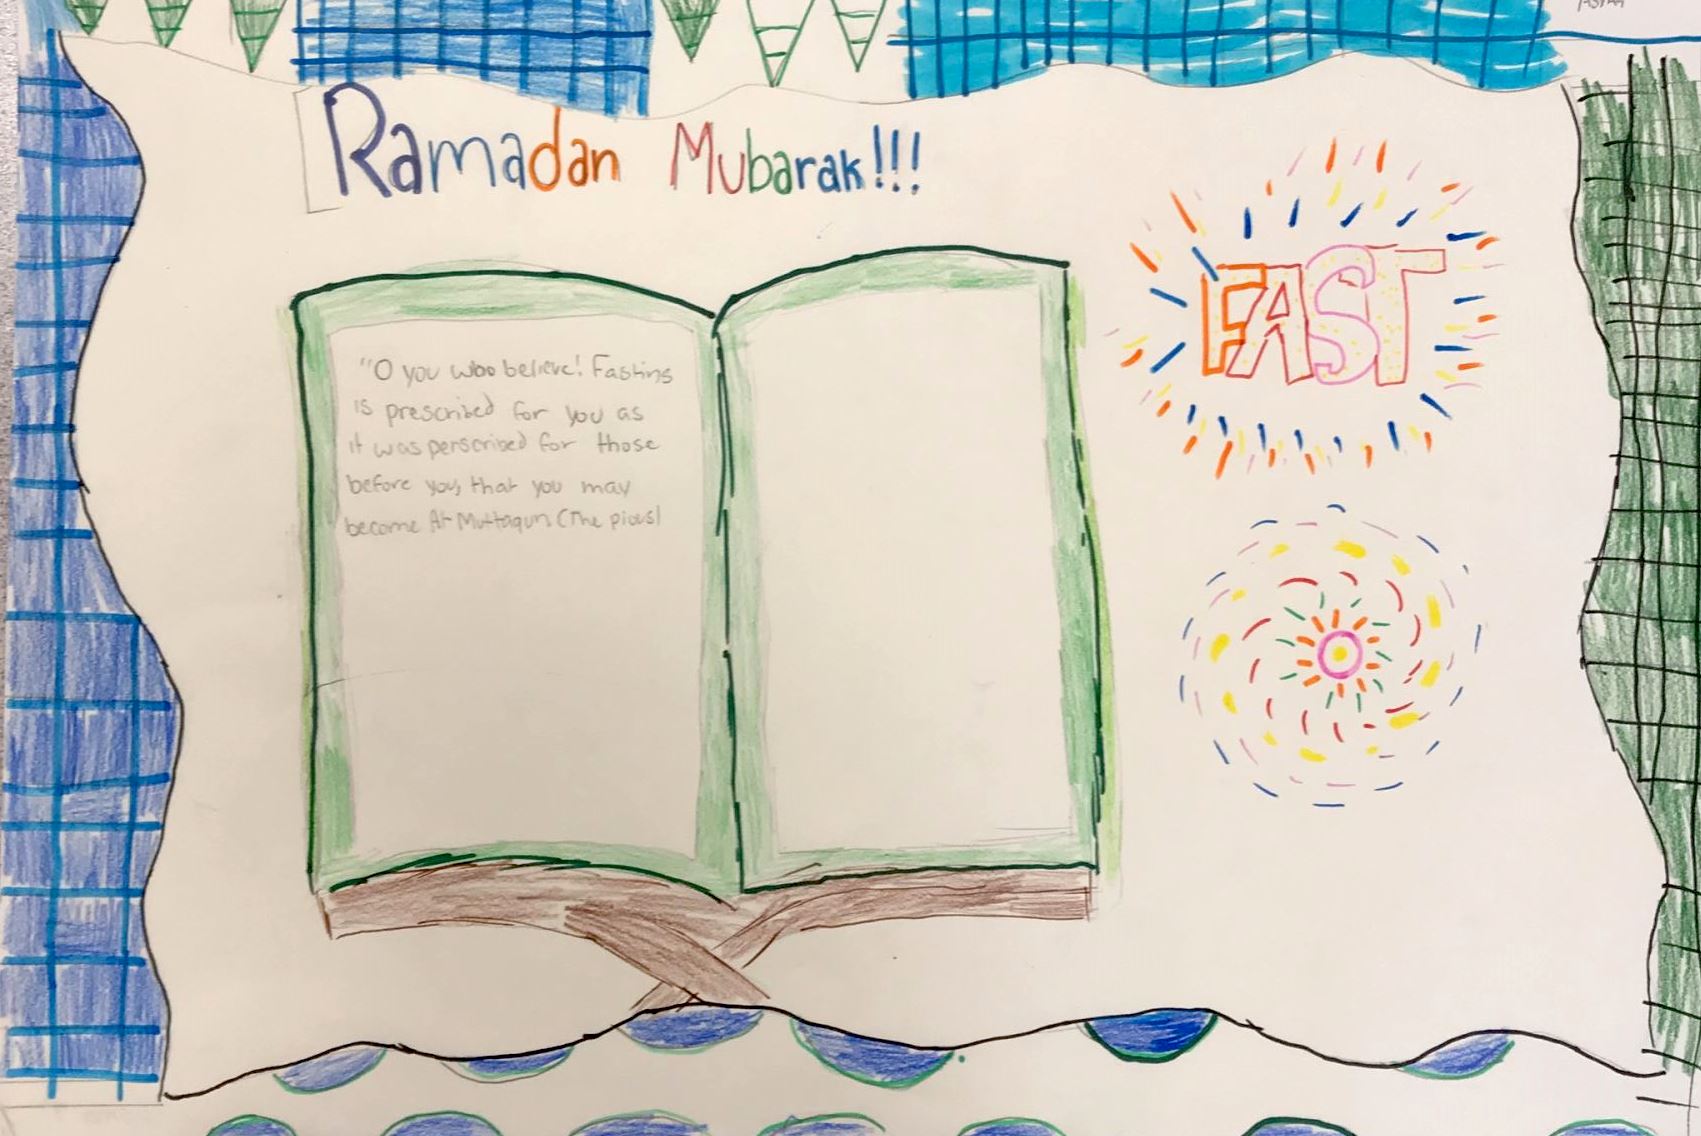 Ramadan Mubarak!!!
FAST
"O you who believe! Fasting
is prescribed for you as
it was perscribed for those
before you, that you may
become Al-Muttaqun (The pious)